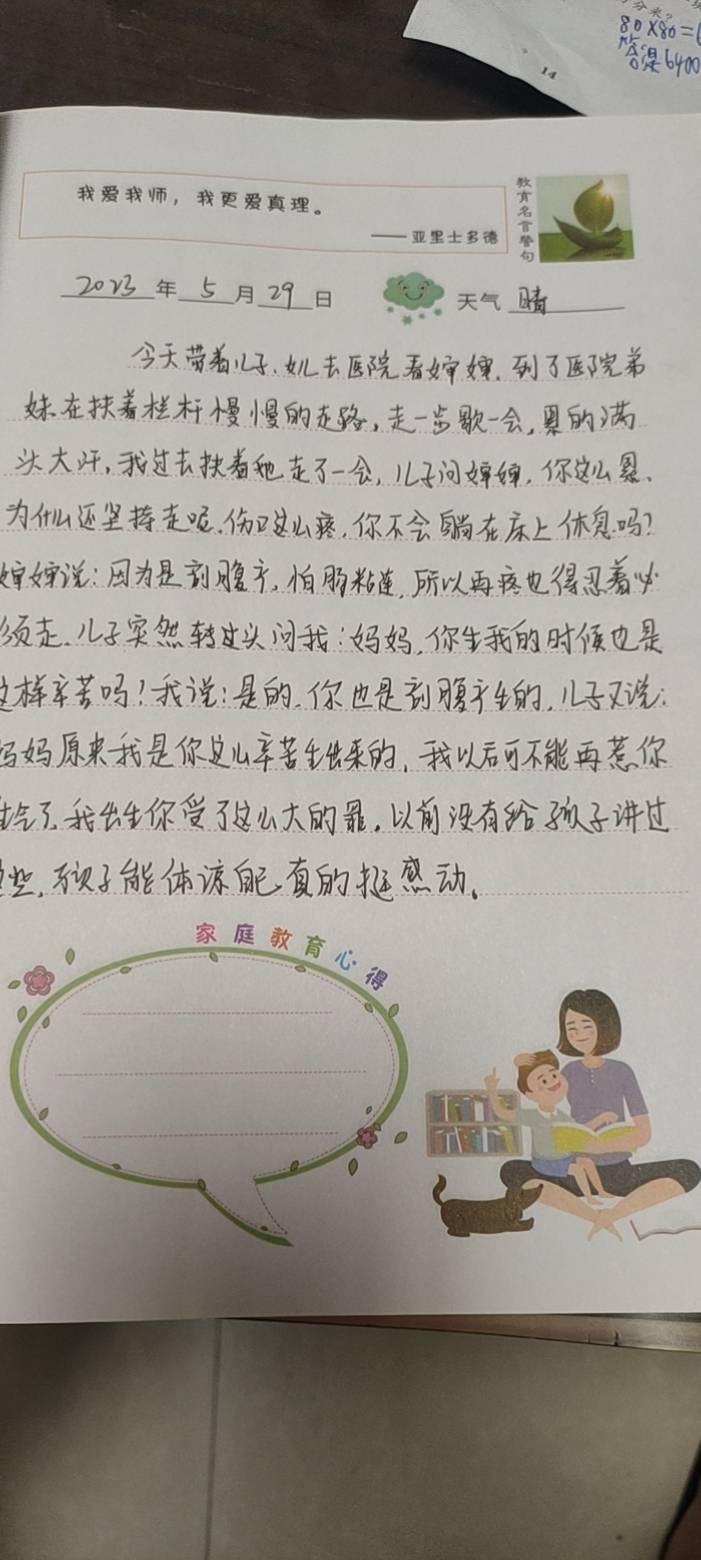 80×80=6
答是6400
14
我爱我师，我更爱真理。
——亚里士多德
教育名言警句
2023年5月29日
天气 晴
今天带着儿子、女儿去医院看婶婶，到了医院弟
妹在扶着栏杆慢慢的走路，走一步歇一会，累的满
头大汗，我过去扶着她走了一会，儿子问婶婶，你这么累、
为什么还坚持走呢，伤口这么疼，你不会躺在床上休息吗？
婶婶说：因为是剖腹产，怕肠粘连，所以再疼也得忍着必
须走，儿子突然转过头问我：妈妈，你生我的时候也是
这样辛苦吗！我说：是的，你也是剖腹产生的，儿子又说：
妈妈原来我是你这么辛苦生出来的，我以后可不能再惹你
生气了，我出生你受了这么大的罪，以前没有给孩子讲过
这些，孩子能体谅自己，真的挺感动。
家庭教育心得